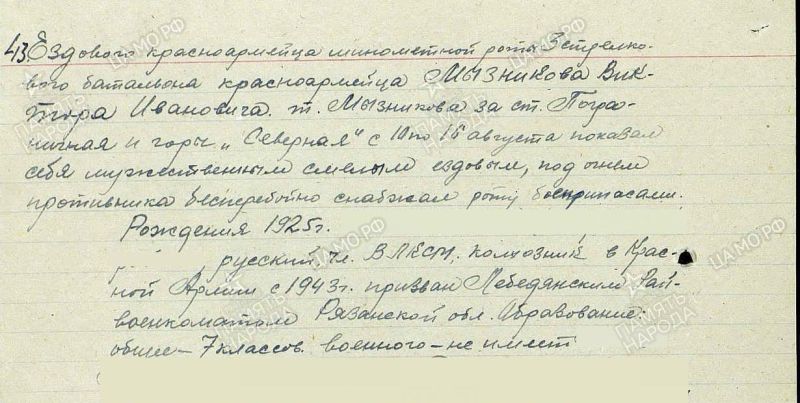 43. Ездового красноармейца минометной роты 3 стрелко-
вого батальона красноармейца Мызникова Вик-
тора Ивановича. т. Мызников за ст. Погра-
ничная и горы „Северная" с 10 по 15 августа показал
себя мужественным смелым ездовым, под огнем
противника бесперебойно снабжал роту боеприпасами.
Рождения 1925г.
русский. чл. ВЛКСМ. колхозник в Крас-
ной Армии с 1943г. призван Лебедянским Рай-
военкоматом Рязанской обл. Образование:
общее – 7 классов. военного – не имеет
ЦАМО.РФ
ПАМЯТЬ НАРОДА